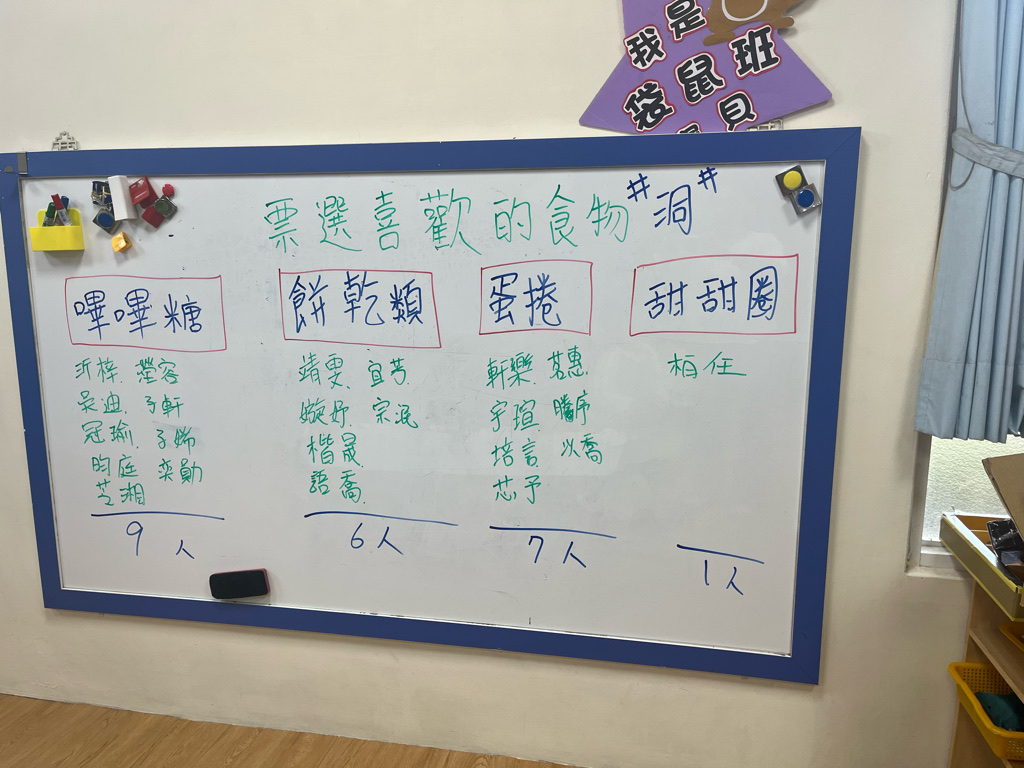 我是
袋鼠班
貝
票選喜歡的食物 #洞#
嗶嗶糖 餅乾類 蛋捲 甜甜圈
沂梓、瀅容 靖雯、宜芳 軒樂、茗惠 柏任
吳迪、子軒 嫙妤、宗泯 宇瑄、騰序
冠瑜、子娣 楷晟 培言、以喬
昀庭、奕勛 語喬 芯予
芝湘
9人 6人 7人 1人